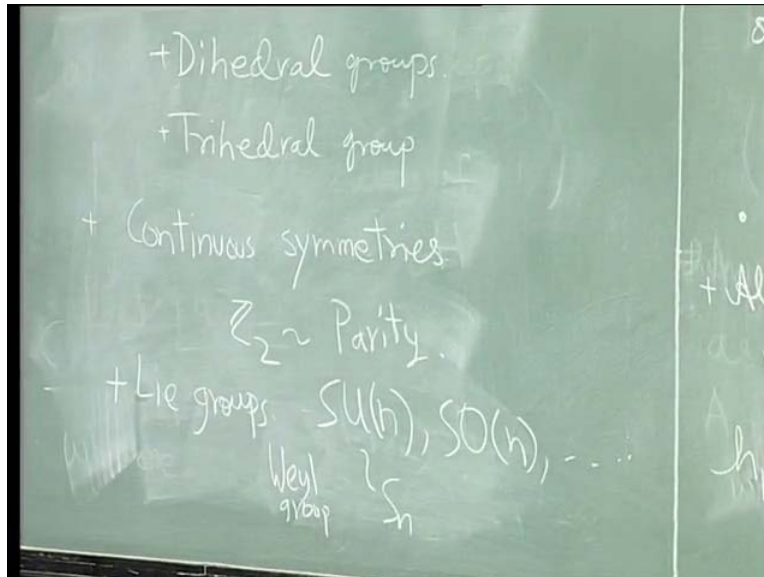 +Dihedral groups.
+Trihedral group
+ Continuous symmetries.
Z₂ ~ Parity.
+Lie groups. SU(n), SO(n), .....
Weyl group ~ Sₙ
+ Al